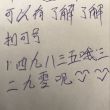 可以有了解了解
扣可号
1四九八三五哦三
二九零呢